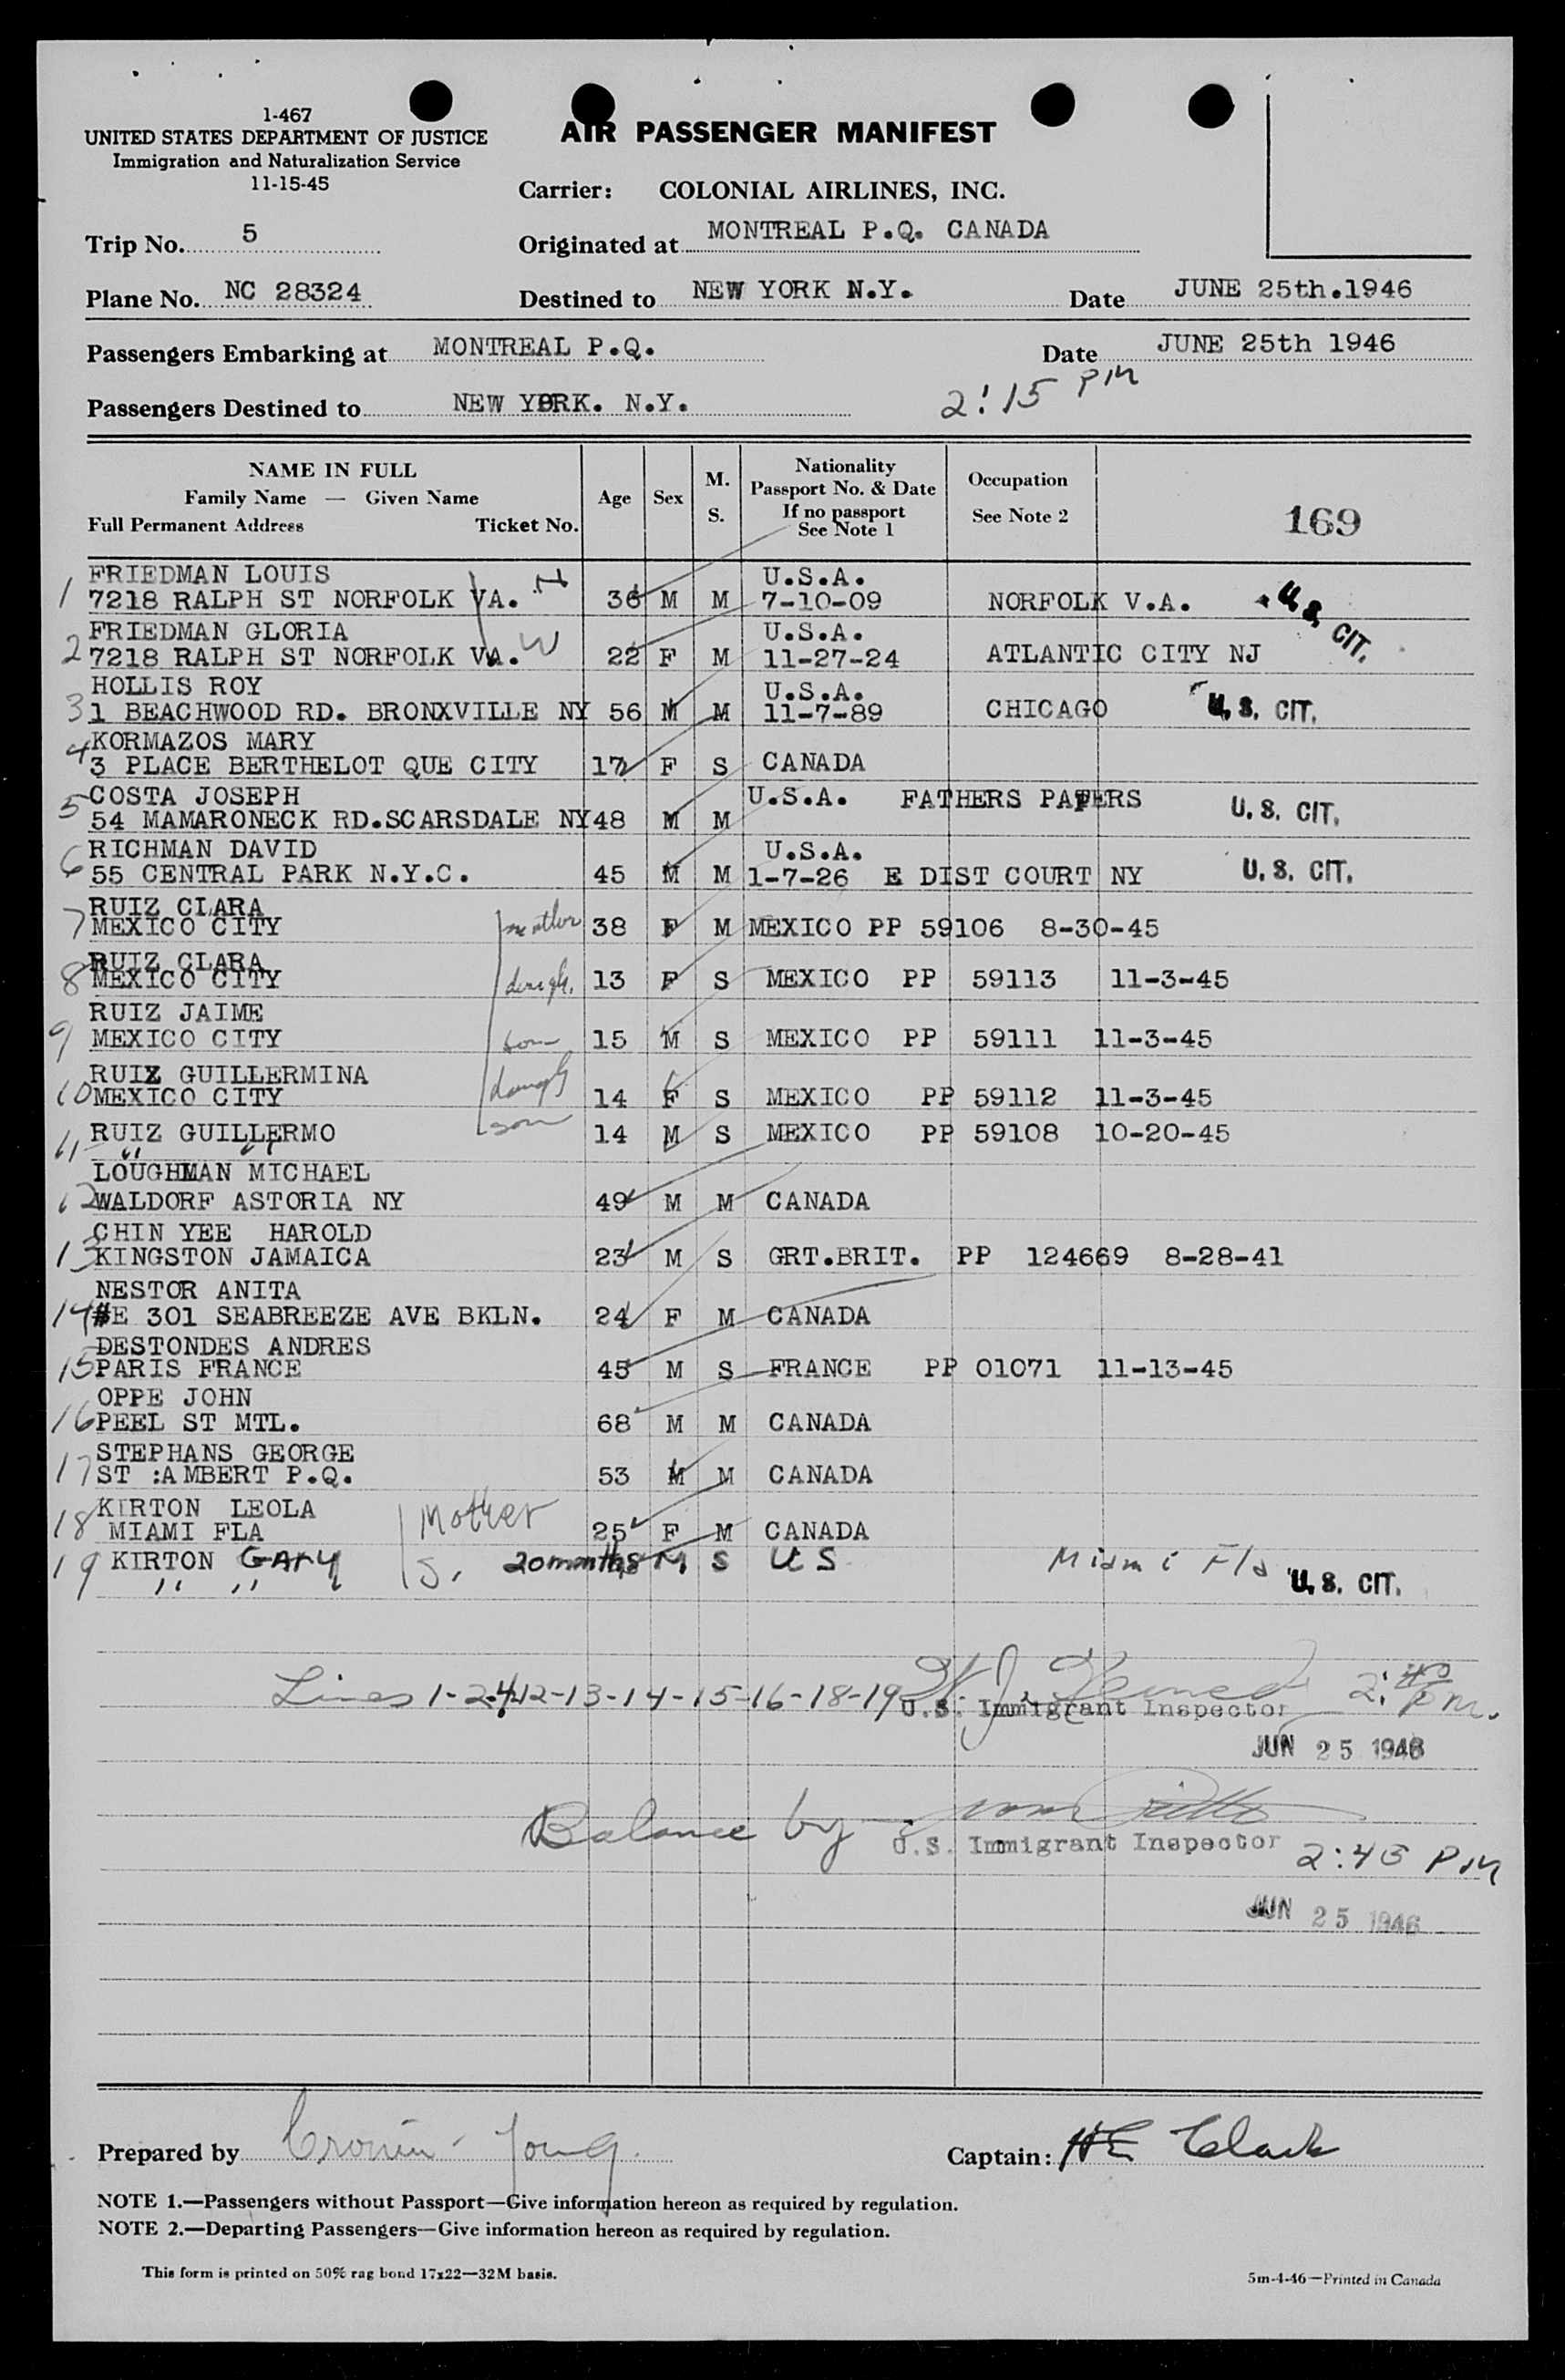 1-467
UNITED STATES DEPARTMENT OF JUSTICE
Immigration and Naturalization Service
11-15-45
AIR PASSENGER MANIFEST
Carrier: COLONIAL AIRLINES, INC.
Trip No. 5
Originated at MONTREAL P.Q. CANADA
Plane No. NC 28324
Destined to NEW YORK N.Y.
Date JUNE 25th.1946
Passengers Embarking at MONTREAL P.Q.
Date JUNE 25th 1946
Passengers Destined to NEW YORK. N.Y.
2:15 PM
NAME IN FULL
Family Name — Given Name
Full Permanent Address Ticket No.
Age
Sex
M.
S.
Nationality
Passport No. & Date
If no passport
See Note 1
Occupation
See Note 2
169
FRIEDMAN LOUIS U.S.A.
1 7218 RALPH ST NORFOLK VA. 36 M M 7-10-09 NORFOLK V.A. U.S. CIT.
FRIEDMAN GLORIA U.S.A.
2 7218 RALPH ST NORFOLK VA. W 22 F M 11-27-24 ATLANTIC CITY NJ
HOLLIS ROY U.S.A.
3 1 BEACHWOOD RD. BRONXVILLE NY 56 M M 11-7-89 CHICAGO U.S. CIT.
4 KORMAZOS MARY
3 PLACE BERTHELOT QUE CITY 17 F S CANADA
5 COSTA JOSEPH U.S.A. FATHERS PAPERS
54 MAMARONECK RD.SCARSDALE NY 48 M M U.S. CIT.
6 RICHMAN DAVID U.S.A.
55 CENTRAL PARK N.Y.C. 45 M M 1-7-26 E DIST COURT NY U.S. CIT.
7 RUIZ CLARA
MEXICO CITY mother 38 F M MEXICO PP 59106 8-30-45
8 RUIZ CLARA
MEXICO CITY daugh. 13 F S MEXICO PP 59113 11-3-45
RUIZ JAIME
9 MEXICO CITY son 15 M S MEXICO PP 59111 11-3-45
RUIZ GUILLERMINA
10 MEXICO CITY daugh 14 F S MEXICO PP 59112 11-3-45
11 RUIZ GUILLERMO son 14 M S MEXICO PP 59108 10-20-45
" "
LOUGHMAN MICHAEL
12 WALDORF ASTORIA NY 49 M M CANADA
CHIN YEE HAROLD
13 KINGSTON JAMAICA 23 M S GRT.BRIT. PP 124669 8-28-41
NESTOR ANITA
14 #E 301 SEABREEZE AVE BKLN. 24 F M CANADA
DESTONDES ANDRES
15 PARIS FRANCE 45 M S FRANCE PP 01071 11-13-45
OPPE JOHN
16 PEEL ST MTL. 68 M M CANADA
STEPHANS GEORGE
17 ST :AMBERT P.Q. 53 M M CANADA
18 KIRTON LEOLA Mother
MIAMI FLA 25 F M CANADA
19 KIRTON GARY S. 20 months M S U S Miami Fla U.S. CIT.
" "
Lines 1-2-4-12-13-14-15-16-18-19
U.S. Immigrant Inspector
JUN 25 1946
Balance by
U.S. Immigrant Inspector 2:45 PM
JUN 25 1946
Prepared by Cronin - Young.
Captain: HE Clark
NOTE 1.—Passengers without Passport—Give information hereon as required by regulation.
NOTE 2.—Departing Passengers—Give information hereon as required by regulation.
This form is printed on 50% rag bond 17x22—32M basis.
5m-4-46—Printed in Canada